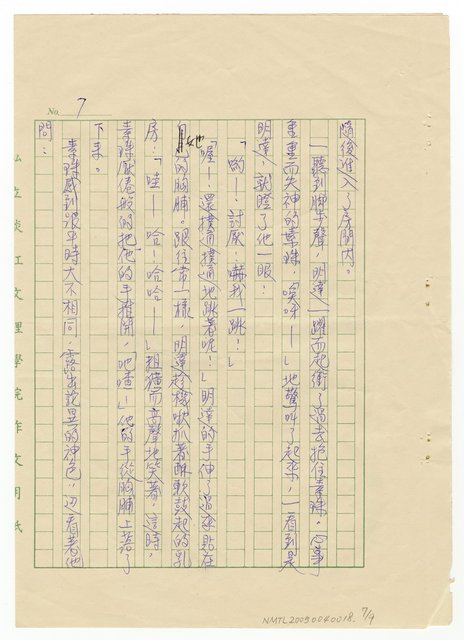 No. 7
隨後進入了房間內。
一聽到脚步聲，明達一躍而起衝了過去抱住素珠。心事
重重而失神的素珠，「唉呀——」地驚叫了起來，一看到是
明達，就瞪了他一眼！
「喲——！討厭！嚇我一跳！」
「喔！還撲通撲通地跳著呢！」明達的手伸了過來貼在
她的胸脯。跟往常一樣，明達趁機吮抓著酥軟鼓起的乳
房，「哇——哈！哈哈——」粗獷而高聲地笑著，這時，
素珠厭倦般的把他的手推開，「吔喳！」他的手從胸脯上落了
下來。
素珠感到跟平時大不相同，露出詫異的神色，迎看著他
問：
私立淡江文理學院作文用紙
NMTL20050040018. 7/9